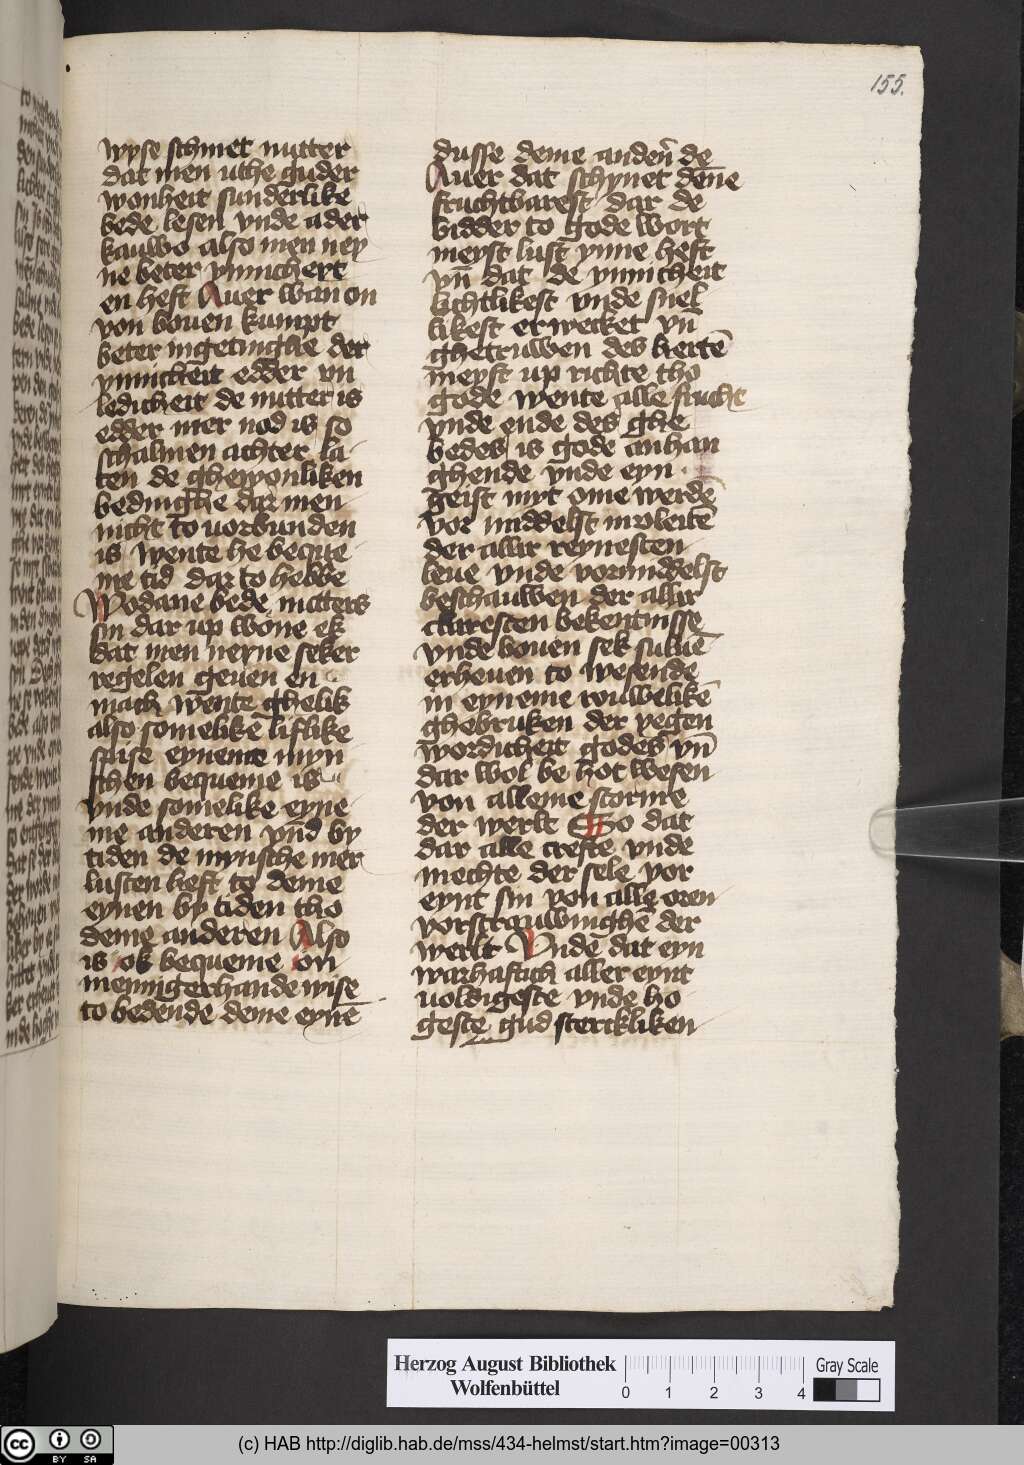 155.
wyse schinet nutter
dat men uthe guder
wonheit sunderlike
bede lesen vnde ader
kauwo also men ney
ne beter ynnichert
en heft Auer wan on
von bouen kumpt
beter ingetinghe der
ynnicheit edder yn
ledicheit de nutter is
edder mer nod is so
schalmen achter la
ten de ghewonliken
bedinghe dar men
nicht to uorbunden
is wente he beqwe
me tid dar to hebbe
Wodane bede nutters
sin dar up wone ek
dat men neyne seker
regelen geuen en
mach wente ghelik
also somelike liflike
spise eynente myn
schen bequeme is
vnde somelike eyne
me anderen vnd by
tiden de mynsche mer
lusten heft to deme
eynen by tiden tho
deme anderen Also
is ok bequeme on
mennigerhande wise
to bedende deme eynē
dusse deme anderē de
Auer dat schynet dēne
fruchtbarest dar de
bidder to gode wort
meyst lust ynne heft
vn̄ dat de ynnicheit
lichtlikest vnde snel
likest erwecket vn̄
ghetruwen des hertē
meyst up richte tho
gode wente alle frucht
vnde ende des ghe
bedes is gode anhan
ghende vnde eyn
geist myt ome werde
vor middelst inroleitē
der allir reynesten
leue vnde vormiddelst
beschauwen der allir
claresten bekentnisse
vnde bouen sek suluē
erheuen to wesende
in eyneme rouwelikē
ghebruken der yegen
wordicheit godes vn̄
dar wol be hot wesen
von alleme storme
der werlt So dat
dar alle crefte vnde
mechte der sele vor
eynt sin von alle oren
vorstrouwinghe der
werlt Vnde dat eyn
warhaftich aller eynt
uoldigeste vnde ho
geste gud sterckliken
Herzog August Bibliothek
Wolfenbüttel
0 1 2 3 4
Gray Scale
cc BY SA
(c) HAB http://diglib.hab.de/mss/434-helmst/start.htm?image=00313